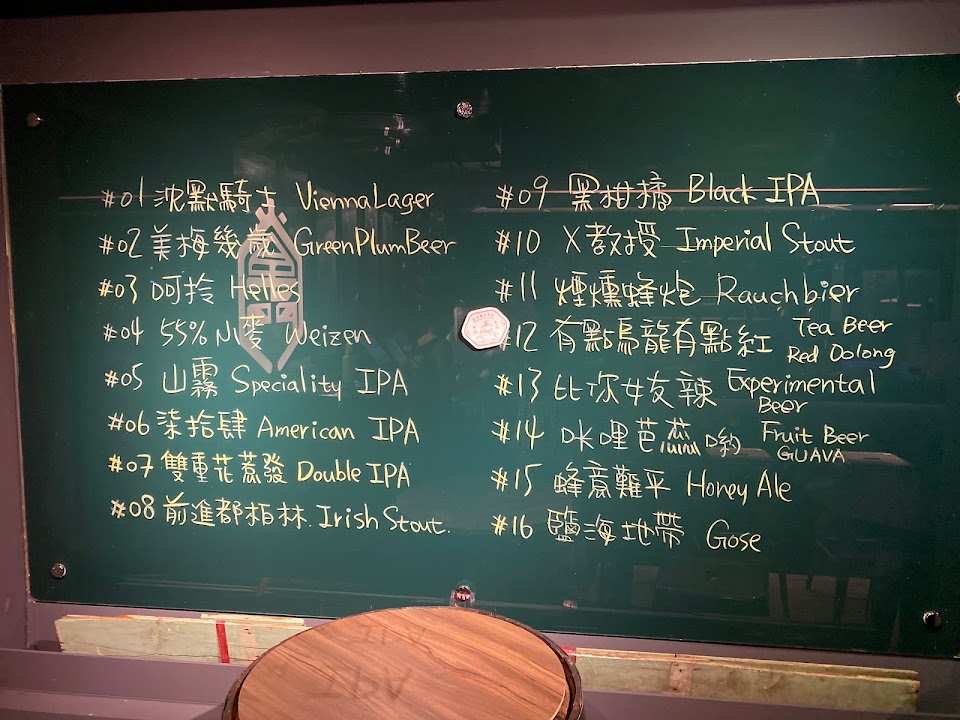 #01 沈默騎士 Vienna Lager
#02 美梅幾歲 GreenPlumBeer
#03 呵拎 Helles
#04 55%小麥 Weizen
#05 山霧 Speciality IPA
#06 柒拾肆 American IPA
#07 雙重花惹發 Double IPA
#08 前進都柏林. Irish Stout.
#09 黑柑橘 Black IPA
#10 X教授 Imperial Stout
#11 煙燻蜂炮 Rauchbier
#12 有點烏龍有點紅 Tea Beer
Red Oolong
#13 比你女友辣 Experimental
Beer
#14 咪哩芭蕊喲 Fruit Beer
GUAVA
#15 蜂意難平 Honey Ale
#16 鹽海地帶 Gose